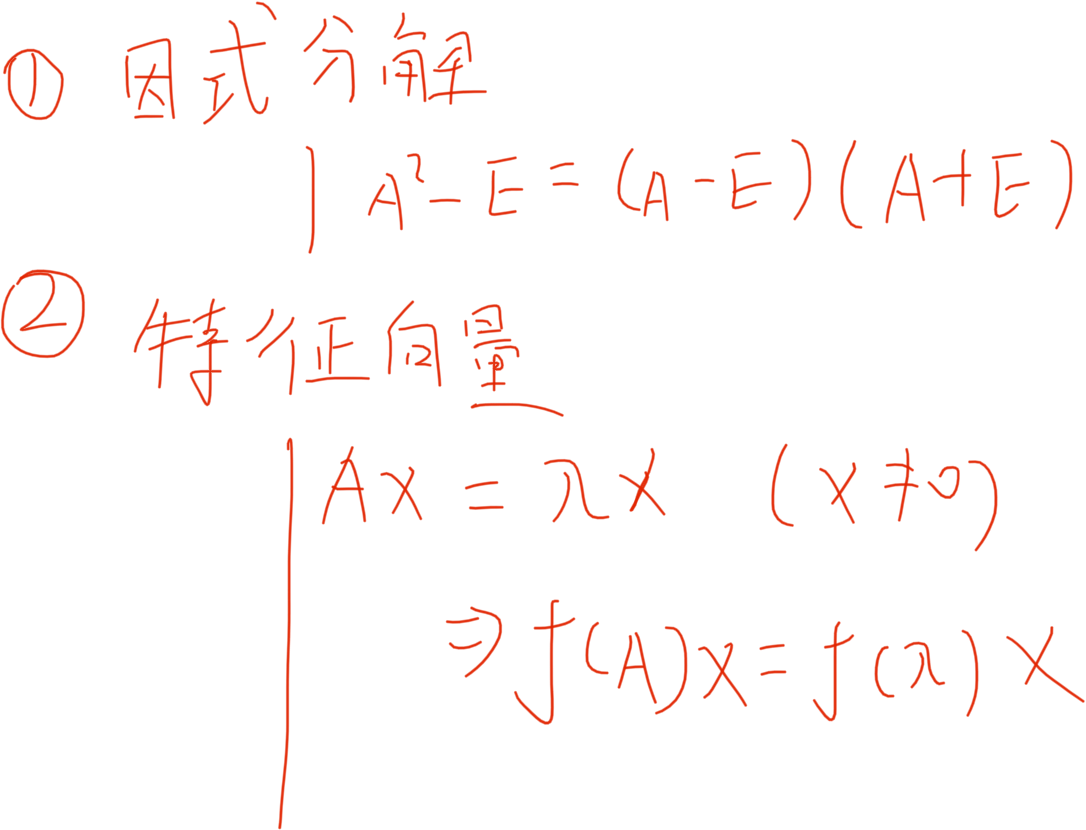 ① 因式分解
A²-E=(A-E)(A+E)
② 特征向量
AX=λX (X≠0)
⇒f(A)X=f(λ)X